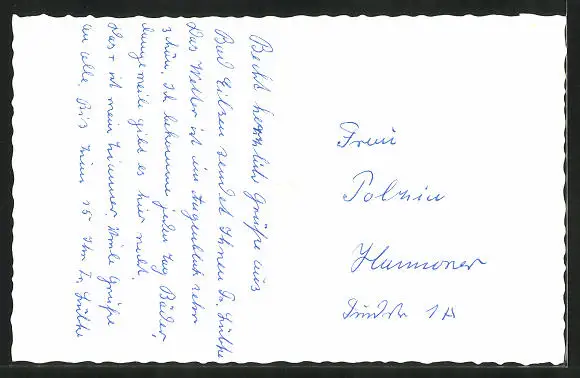 Recht herzliche Grüße aus
Bad Eilsen sendet Ihnen Fr. Lübke
Das Wetter ist im Augenblick sehr
schön. Ich bekomme jeden Tag Bäder,
Langeweile gibt es hier nicht.
Das + ist mein Zimmer. Viele Grüße
an alle. Bis zum 15 Ihr Fr. Lübke
Frau
Polzin
Hannover
1A